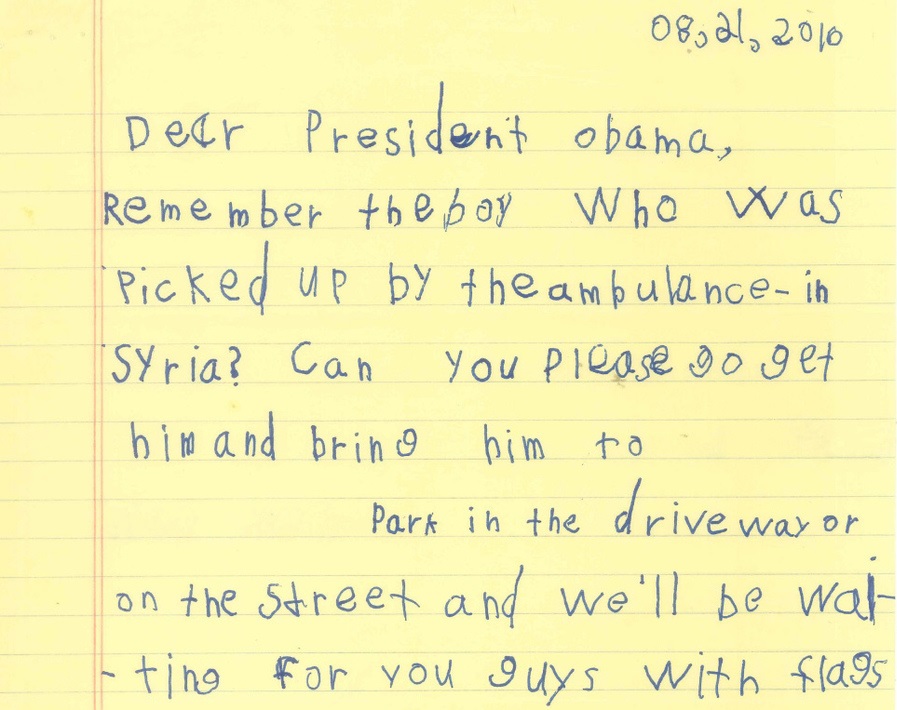 08, 21, 2010
Dear President obama,
Remember the boy who was
picked up by the ambulance - in
Syria? Can you please go get
him and bring him to
Park in the driveway or
on the street and we'll be wai-
-ting for you guys with flags